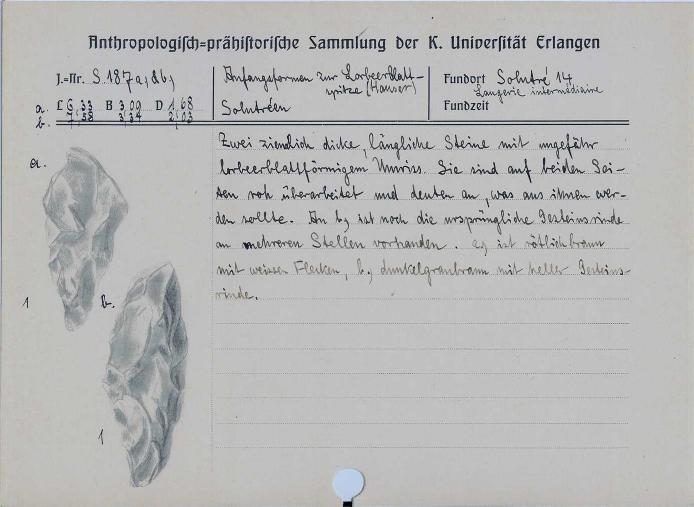 Anthropologisch=prähistorische Sammlung der K. Universität Erlangen
J.=Nr. S. 187a,&b,
Anfangsformen zur Lorbeerblatt-
spitze (Hauser)
Solutréen
Fundort Solutré 14
Laugerie intermédiaire
Fundzeit
a. L 6,33 B 3,00 D 1,68
b. 7,58 3,34 2,03
Zwei ziemlich dicke, längliche Steine mit ungefähr
lorbeerblattförmigem Umriss. Sie sind auf beiden Sei-
ten roh überarbeitet und deuten an, was aus ihnen wer-
den sollte. An b, ist noch die ursprüngliche Gesteinsrinde
an mehreren Stellen vorhanden. a, ist rötlichbraun
mit weissen Flecken, b, dunkelgraubraun mit heller Gesteins-
rinde.
a.
1
b.
1